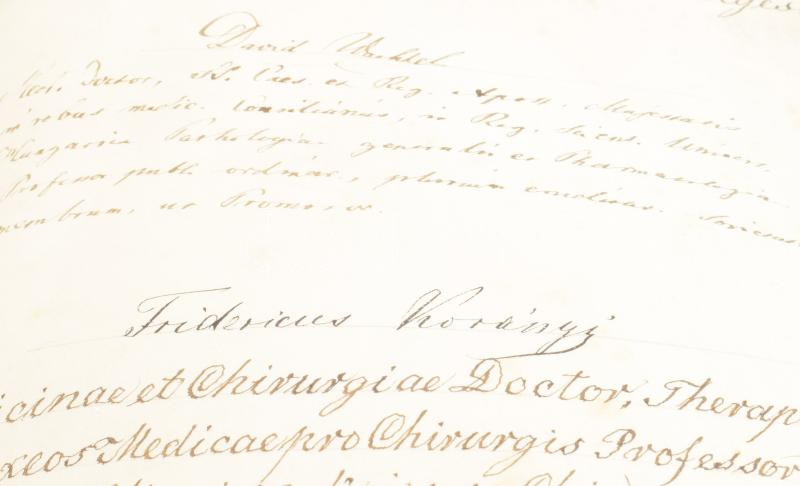 David Wachtel
Med. Doctor, S. Caes. et Reg. Apost. Majestatis
in rebus medic. Consiliarius, in Reg. Scient. Univers.
Hungarica Pathologiae generalis et Pharmacologiae
Professor publ. ordinar., plurium eruditar. Societat.
membrum, ut Promotor.
Fridericus Korányi
icinae et Chirurgiae Doctor, Therap
xeos Medicae pro Chirurgis Professor